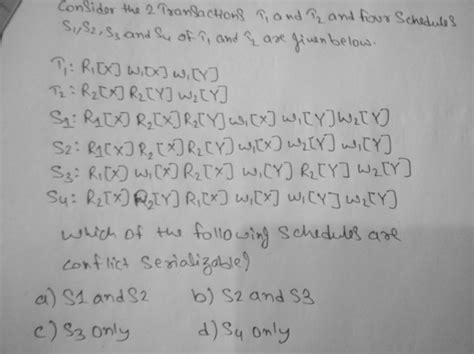 Consider the 2 Transactions T1 and T2 and four Schedules
S1, S2, S3 and S4 of T1 and T2 are given below.
T1: R1[X] W1[X] W1[Y]
T2: R2[X] R2[Y] W2[Y]
S1: R1[X] R2[X] R2[Y] W1[X] W1[Y] W2[Y]
S2: R1[X] R2[X] R2[Y] W1[X] W2[Y] W1[Y]
S3: R1[X] W1[X] R2[X] W1[Y] R2[Y] W2[Y]
S4: R2[X] R2[Y] R1[X] W1[X] W1[Y] W2[Y]
which of the following schedules are
conflict serializable?
a) S1 and S2 b) S2 and S3
c) S3 only d) S4 only